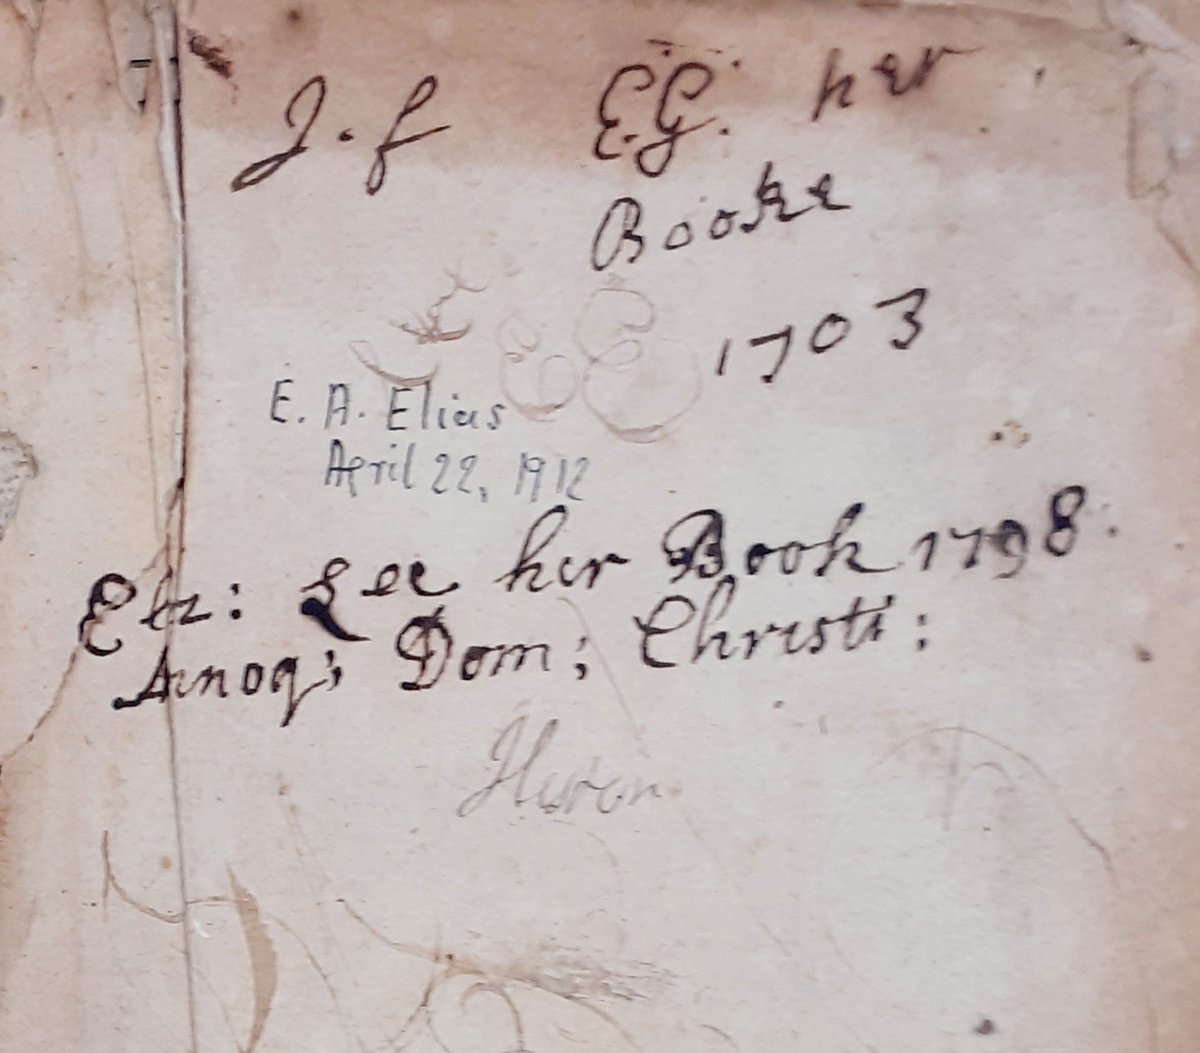 J. f
E.G. her
Booke
1703
E. A. Elias
April 22, 1912
Eliz: Lee her Book 1798
Anoq; Dom; Christi: